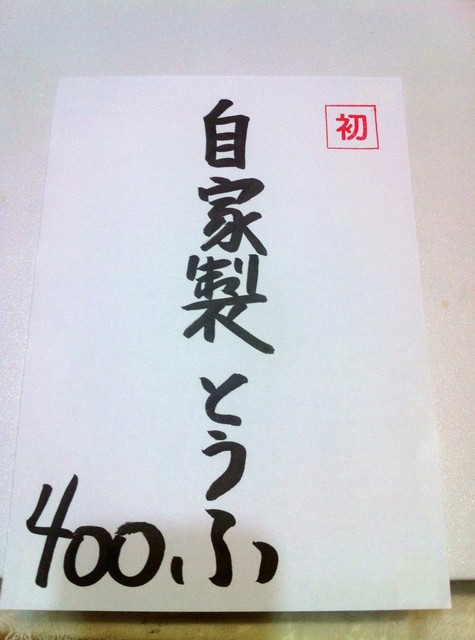 初
自家製とうふ
400